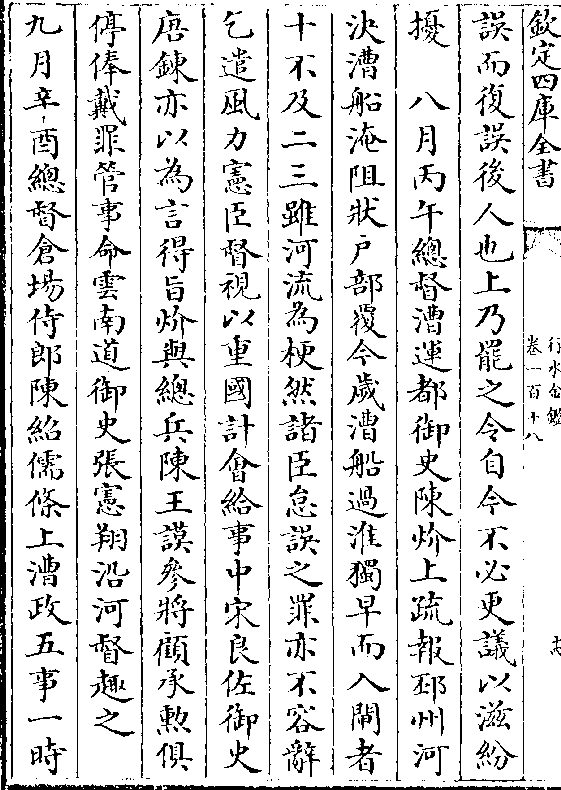 欽定四庫全書
行水金鑑
卷一百十八
誤而復誤後人也上乃罷之令自今不必更議以滋紛
擾　八月丙午總督漕運都御史陳炌上疏報邳州河
決漕船淹阻狀戶部覆今歲漕船過淮獨早而入閘者
十不及二三雖河流為梗然諸臣怠誤之罪亦不容辭
乞遣風力憲臣督視以重國計會給事中宋良佐御史
唐鍊亦以為言得旨炌與總兵陳王謨參將顧承勲俱
停俸戴罪管事命雲南道御史張憲翔沿河督趣之
九月辛酉總督倉場侍郎陳紹儒條上漕政五事一時